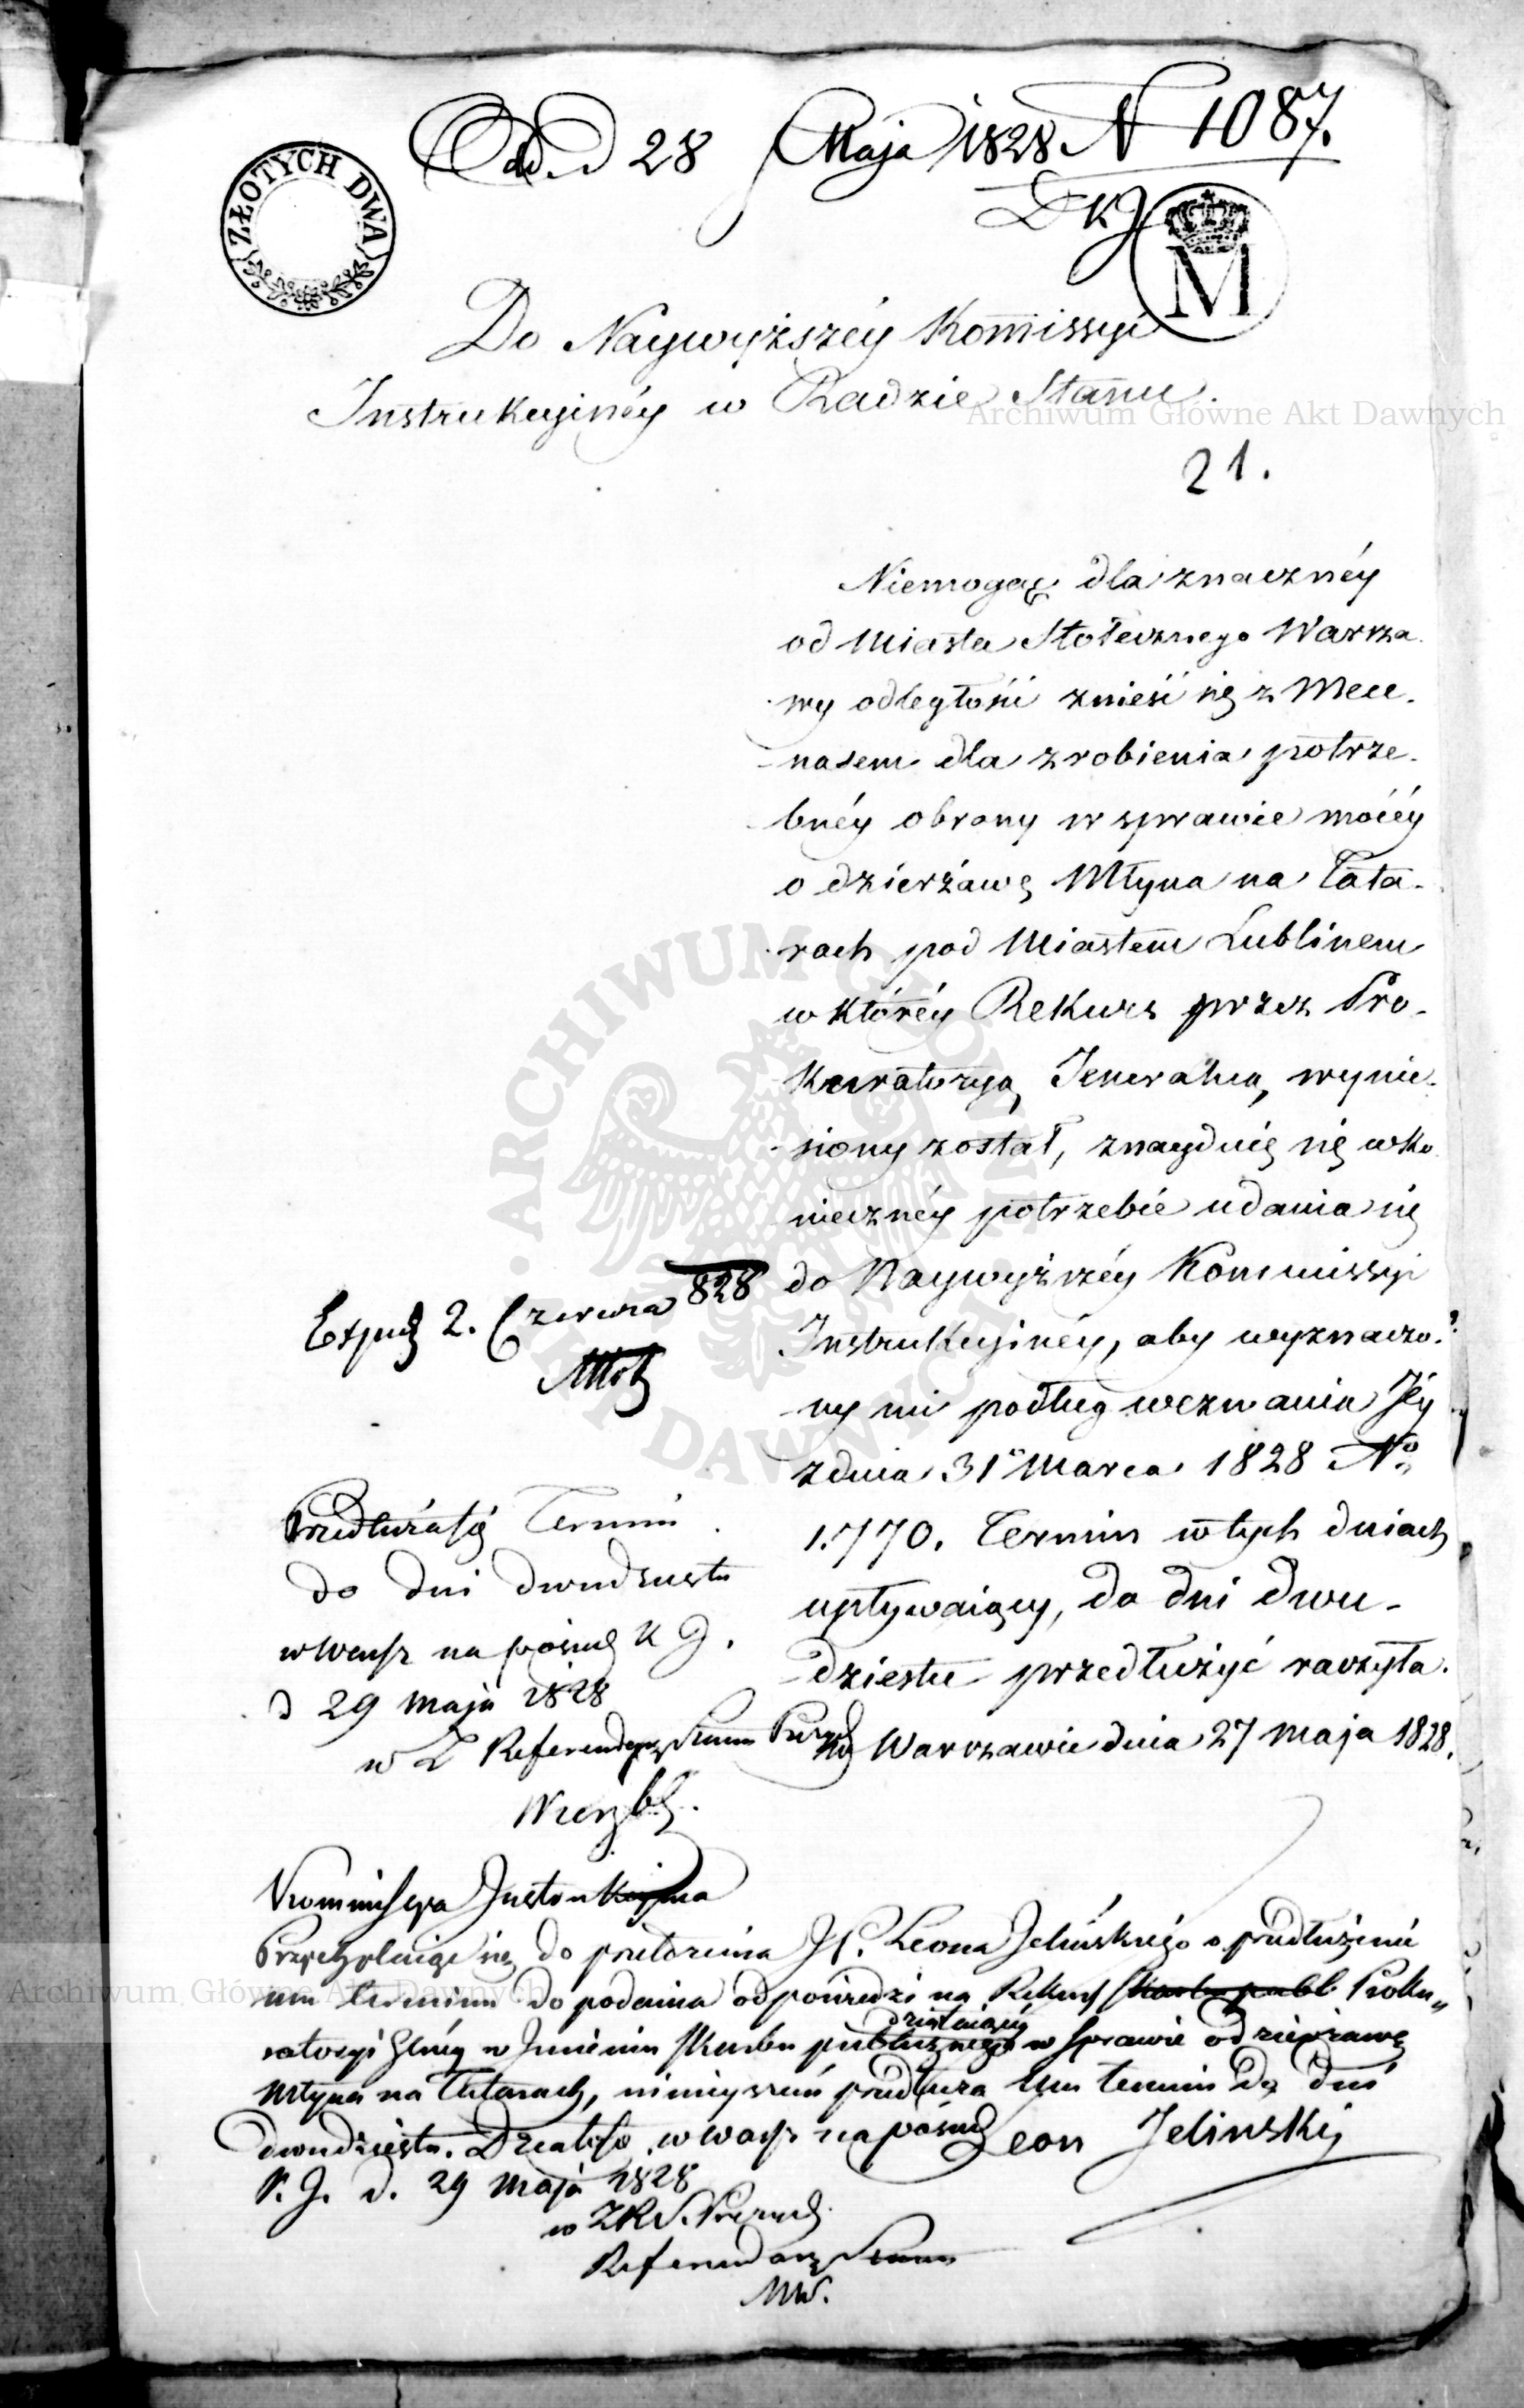 Odd. d 28 Maja 1828 N 1087.
DKJ
ZŁOTYCH DWA
M
Do Naywyższéy Kommissyi
Instrukcyinéy w Radzie Stanu.
Archiwum Główne Akt Dawnych
21.
Niemogąc dla znacznéy
od Miasta Stołecznego Warsza-
wy odległości znieść się z Mece-
nasem dla zrobienia potrze-
bnéy obrony w sprawie moiéy
o dzierżawę Młyna na Tata-
rach pod Miastem Lublinem
w któréy Rekurs przez Pro-
kuratoryą Jeneralną, wynie-
siony został, znayduię się w ko-
nieczney potrzebie udania się
do Naywyższéy Kommissyi
Instrukcyinéy, aby wyznaczo-
ny mi podług wezwania Jéy
z dnia 31 Marca 1828 No
1.770. Termin w tych dniach
upływaiący, do dni dwu-
dziestu przedłużyć raczyła.
w Warszawie dnia 27 Maja 1828.
Exped 2. Czerwca 828
Przedłuża się Termin
do dni dwudziestu
w Warsz na posied K J.
d 29 Maja 1828
w Z Referendarz Stanu
Wierzb
Kommissya Instrukcyina
Przychylaiąc się do przełożenia JP. Leona Jelińskiego o przedłużenie
mu terminu do podania odpowiedzi na Rekurs Skarbu publ Proku-
ratoryi Glnéy w Imieniu Skarbu publicznego działaiącéy w sprawie o dzierżawę
Młyna na Tatarach, ninieyszém przedłuża tym termin do dni
dwudziestu. Działo się w Warsz na posied
K. J. d. 29 Maja 1828
Leon Jelinski
w Z R S. Prezyd.
Referendarz Stanu
MW.
Archiwum Główne Akt Dawnych
ARCHIWUM GŁÓWNE AKT DAWNYCH